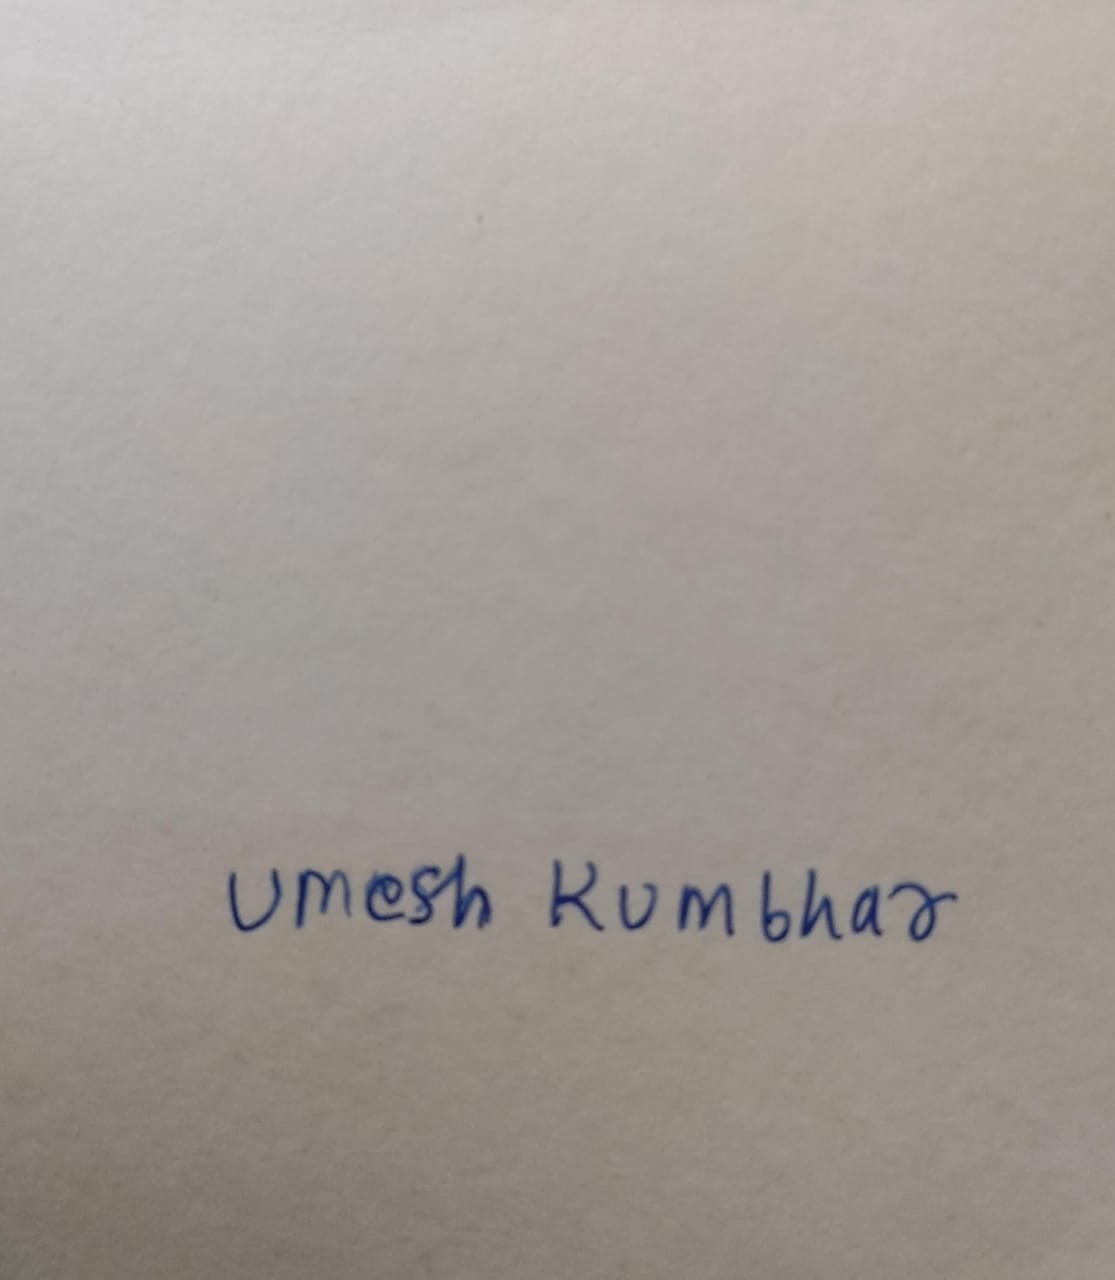 Umesh Kumbhar